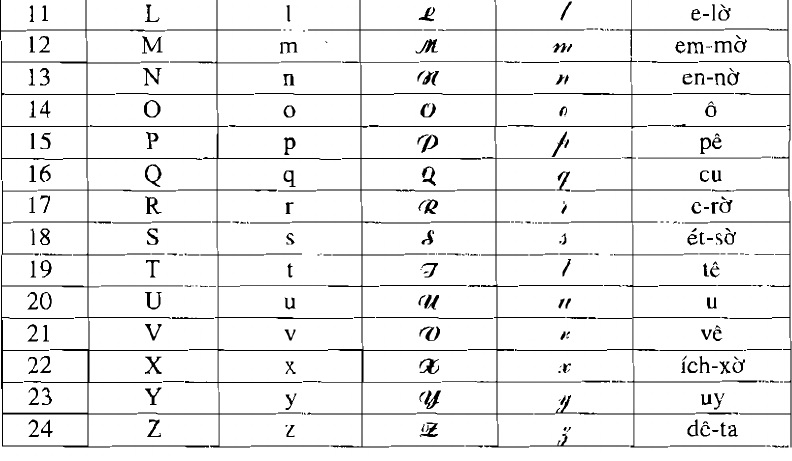 11 L l L l e-lờ
12 M m M m em-mờ
13 N n N n en-nờ
14 O o O o ô
15 P p P p pê
16 Q q Q q cu
17 R r R r e-rờ
18 S s S s ét-sờ
19 T t T t tê
20 U u U u u
21 V v V v vê
22 X x X x ích-xờ
23 Y y Y y uy
24 Z z Z z dê-ta